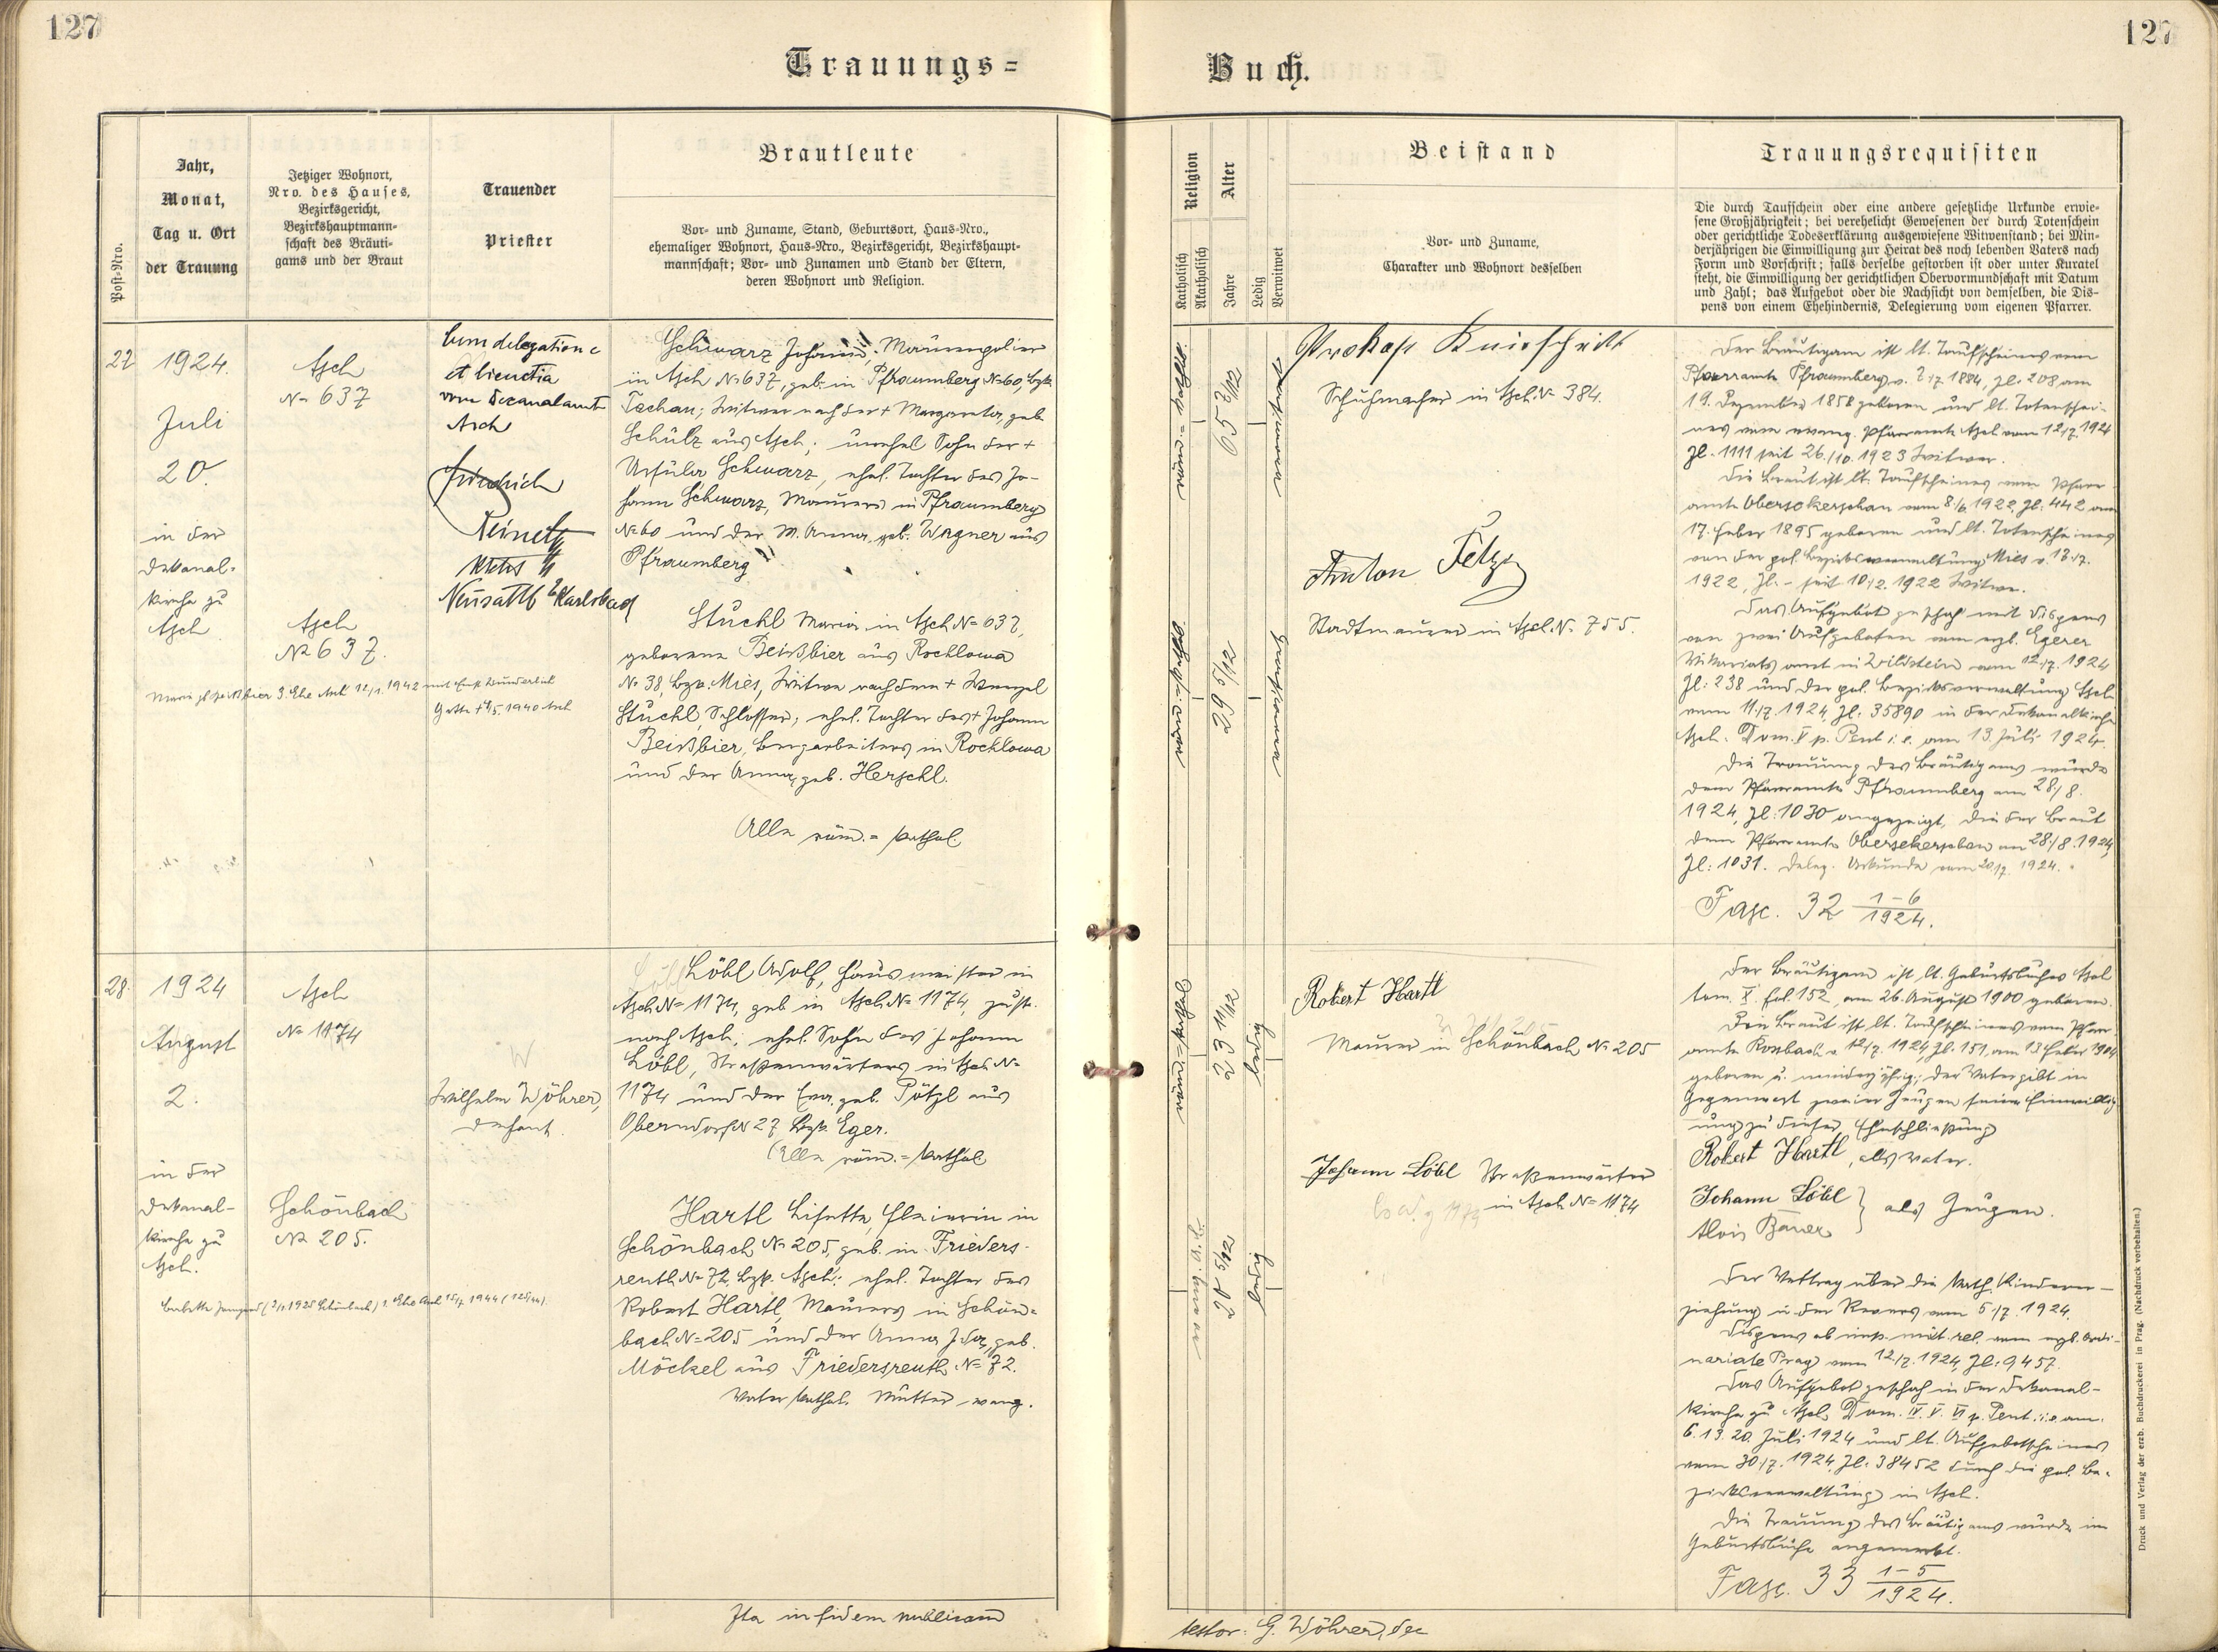 127
127
Trauungs=
Buch.
Post-Nro.
Jahr,
Monat,
Tag u. Ort
der Trauung
Jetziger Wohnort,
Nro. des Hauses,
Bezirksgericht,
Bezirkshauptmann-
schaft des Bräuti-
gams und der Braut
Trauender
Priester
Brautleute
Vor- und Zuname, Stand, Geburtsort, Haus-Nro.,
ehemaliger Wohnort, Haus-Nro., Bezirksgericht, Bezirkshaupt-
mannschaft; Vor- und Zunamen und Stand der Eltern,
deren Wohnort und Religion.
Religion
Katholisch
Akatholisch
Alter
Jahre
Ledig
Verwitwet
Beistand
Vor- und Zuname,
Charakter und Wohnort desselben
Trauungsrequisiten
Die durch Taufschein oder eine andere gesetzliche Urkunde erwie-
sene Großjährigkeit; bei verehelicht Gewesenen der durch Totenschein
oder gerichtliche Todeserklärung ausgewiesene Witwenstand; bei Min-
derjährigen die Einwilligung zur Heirat des noch lebenden Vaters nach
Form und Vorschrift; falls derselbe gestorben ist oder unter Kuratel
steht, die Einwilligung der gerichtlichen Obervormundschaft mit Datum
und Zahl; das Aufgebot oder die Nachsicht von demselben, die Dis-
pens von einem Ehehindernis, Delegierung vom eigenen Pfarrer.
27
1924.
Juli
20.
in der
Dekanal-
kirche zu
Asch
Asch
N= 637
Asch
N= 637.
Cum delegatione
et licentia
vom Decanalamte
Asch
Friedrich
Neusattl b/Karlsbad
Schwarz Johann, Maurerpolier
in Asch N= 637, geb. in Pfraumberg N= 60, Bzk.
Tachau; Witwer nach der + Margareta, geb.
Schulz aus Asch; unehel. Sohn der +
Ursula Schwarz, ehel. Tochter des Jo-
hann Schwarz, Maurers in Pfraumberg
N= 60 und der M. Anna, geb. Wagner aus
Pfraumberg
Stuchl Maria in Asch N= 637,
geborene Beißbier aus Rochlowa
N= 38, Bzk. Mies, Witwe nach dem + Wenzel
Stuchl, Schlosser; ehel. Tochter des + Johann
Beißbier, Bergarbeiters in Rochlowa
und der Anna, geb. Herschl.
Alle röm.= kathol.
3. Ehe Asch 12/1. 1942 mit
Gatte + 1940 Asch
65 7/12
29 5/12
Prokop
Schuhmacher in Asch N= 384.
Anton Felz
Stadtmaurer in Asch N= 755.
Der Bräutigam ist lt. Taufscheines vom
Pfarramte Pfraumberg v. 2./7. 1884, Zl. 208 am
19. Dezember 1858 geboren und lt. Totenschei-
nes vom evang. Pfarramte Asch vom 12./7. 1924
Zl. 1111 seit 26./10. 1923 Witwer.
Die Braut ist lt. Taufscheines vom Pfarr-
amte Obersekerschan vom 8./6. 1922, Zl: 442 am
17. Feber 1895 geboren und lt. Totenscheines
von der pol. Bezirksverwaltung Mies v. 13./7.
1922, Zl. – seit 10./2. 1922 Witwe.
Das Aufgebot geschah mit Dispens
von zwei Aufgeboten vom erzb. Egerer
Vikariatsamt in Wildstein vom 12./7. 1924
Zl: 238 und der pol. Bezirksverwaltung Asch
vom 11./7. 1924, Zl: 35890 in der Dekanalkirche
Asch. Dom. V p. Pent i. e. am 13. Juli 1924.
Die Trauung des Bräutigams wurde
dem Pfarramte Pfraumberg am 28./8.
1924, Zl: 1030 angezeigt, die der Braut
dem Pfarramte Obersekerschan am 28./8. 1924,
Zl: 1031. Deleg. Urkunde vom 20./7. 1924.
Fasc. 32 1-6/1924.
28.
1924
August
2.
in der
Dekanal-
kirche zu
Asch.
Asch
N= 1174
Schönbach
N= 205.
Wilhelm Wöhrer,
Dechant.
Löbl Adolf, Hausmeister in
Asch N= 1174, geb. in Asch N= 1174, zust.
nach Asch, ehel. Sohn des Johann
Löbl, Straßenwärters in Asch N=
1174 und der Eva, geb. Pötzl aus
Oberndorf N= 27 Bzk. Eger.
Alle röm.= kathol.
Hartl Lisette, in
Schönbach N= 205, geb. in Frieders-
reuth N= 72, Bzk. Asch; ehel. Tochter des
Robert Hartl, Maurers in Schön-
bach N= 205 und der Anna Ida, geb.
Möckel aus Friedersreuth N= 72.
Vater kathol. Mutter evang.
23 11/12
20 5/12
ledig
ledig
Robert Hartl
Maurer in Schönbach N= 205
Johann Löbl Straßenwärter
in Asch N= 1174
Der Bräutigam ist lt. Geburtsbuches Asch
tom. X. fol. 152, am 26. August 1900 geboren.
Die Braut ist lt. Taufscheines vom Pfarr-
amte Rossbach v. 12./7. 1924, Zl. 151, am 13. Feber 1904
geboren u. minderjährig; der Vater gibt in
Gegenwart zweier Zeugen seine Einwillig-
ung zu dieser Eheschließung
Robert Hartl, als Vater.
Johann Löbl } als Zeugen.
Alois Bauer
Der Vertrag über die kath. Kinderer-
ziehung u. der Revers vom 5./7. 1924.
Dispens ab imp. mixt. rel. vom erzb. Ordi-
nariate Prag vom 12./7. 1924, Zl: 9457.
Das Aufgebot geschah in der Dekanal-
kirche zu Asch Dom. IV. V. VI p. Pent. i. e. am
6. 13. 20. Juli 1924 und lt. Aufgebotscheines
vom 30./7. 1924, Zl: 38452 durch die pol. Be-
zirksverwaltung in Asch.
Die Trauung des Bräutigams wurde im
Geburtsbuche angemerkt.
Fasc. 33 1-5/1924.
Ita in fidem publicam
testor: G. Wöhrer, Dec
Druck und Verlag der erzb. Buchdruckerei in Prag. (Nachdruck vorbehalten.)